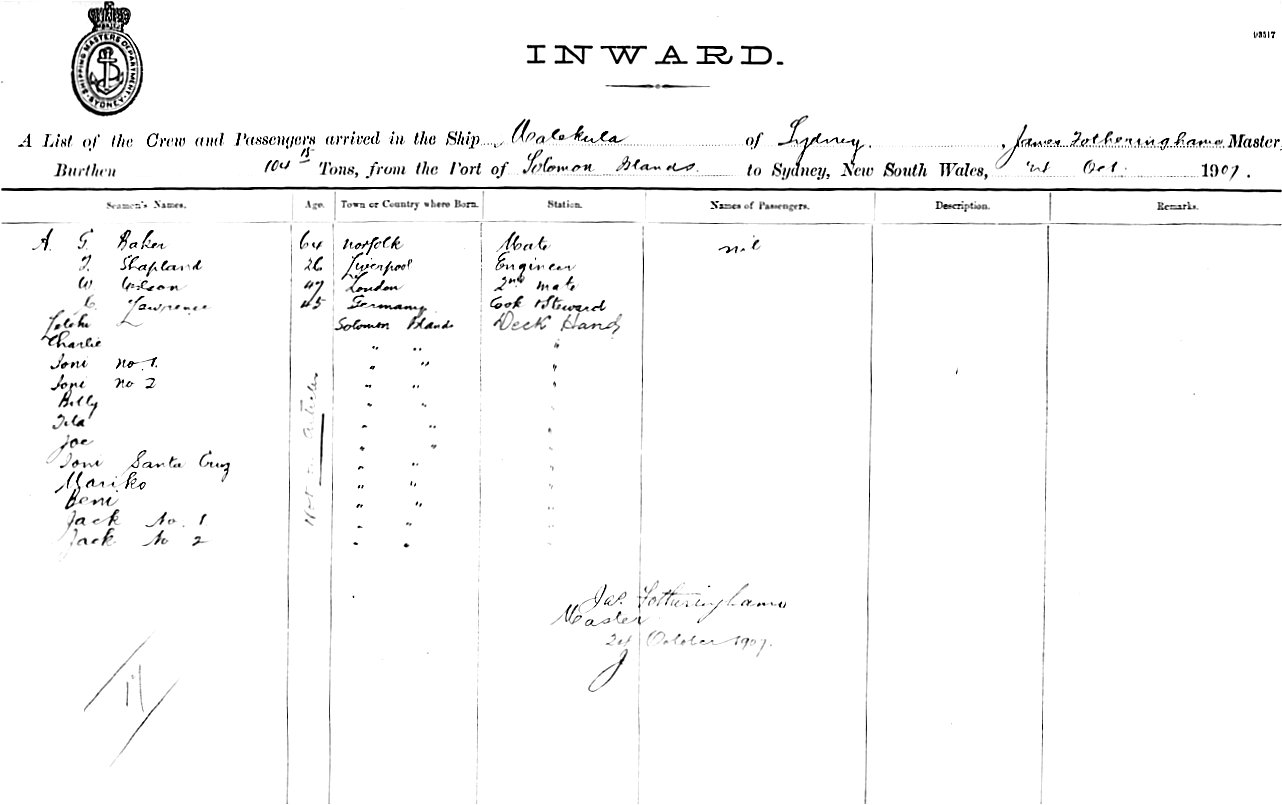 SHIPPING MASTERS DEPARTMENT
SYDNEY
INWARD.
A List of the Crew and Passengers arrived in the Ship Malekula of Sydney, James Fotheringhame Master,
Burthen 104 Tons, from the Port of Solomon Islands to Sydney, New South Wales, Oct. 1907.
Seamen's Names. Age. Town or Country where Born. Station. Names of Passengers. Description. Remarks.
A. G. Baker 64 Norfolk Mate nil
Shapland 26 Liverpool Engineer
W. Wilson 47 London 2nd Mate
Lawrence 45 Germany Cook Steward
Solomon Islands Deck Hand
Charlie " " "
Toni No 1. " " "
Toni No 2 " " "
Billy " " "
" " "
Joe " " "
Toni Santa Cruz " " "
Mariko " " "
Beni " " "
Jack No. 1 " " "
Jack No 2 " " "
Not on Articles
Jas. Fotheringhame
Master
October 1907.
17